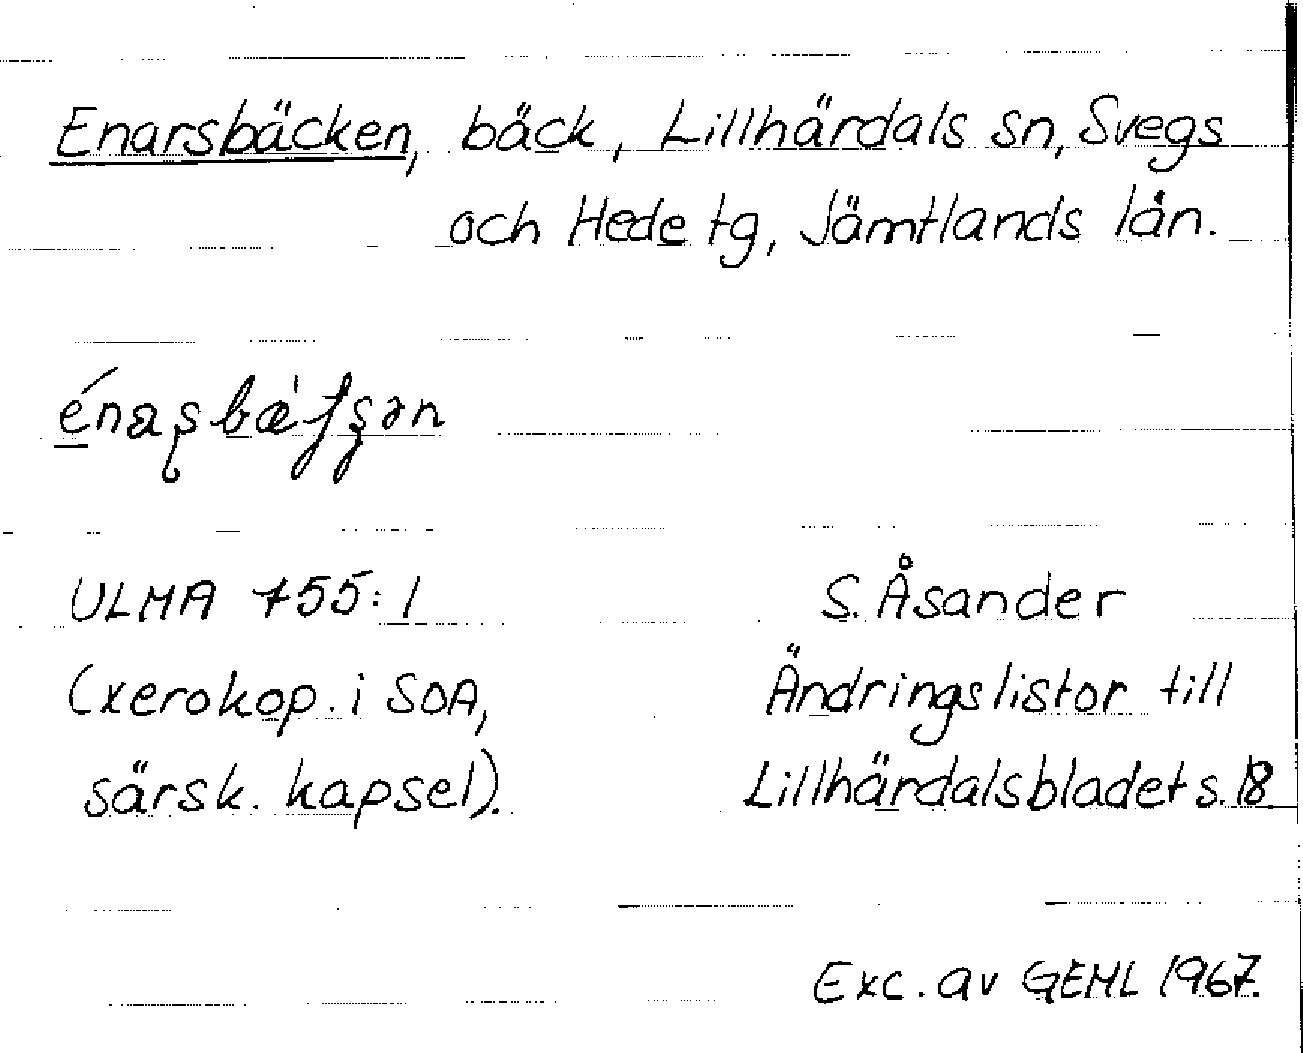 Enarsbäcken, bäck, Lillhärdals sn, Svegs
och Hede tg, Jämtlands län.
ULMA 755:1
(xerokop. i SOA,
särsk. kapsel).
S. Åsander
Ändringslistor till
Lillhärdalsbladet s. 18
Exc. av GEHL 1967.